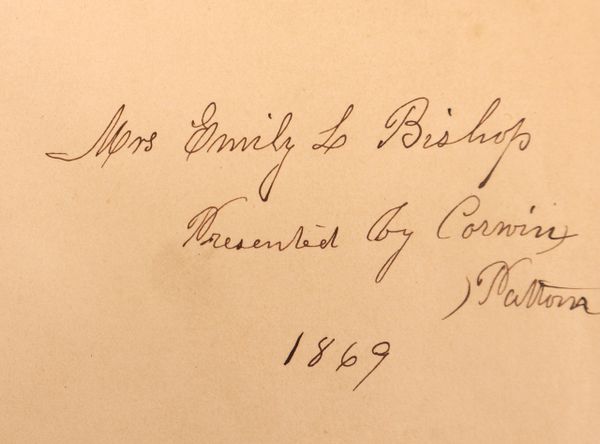 Mrs Emily L Bishop
Presented by Corwin
Patton
1869